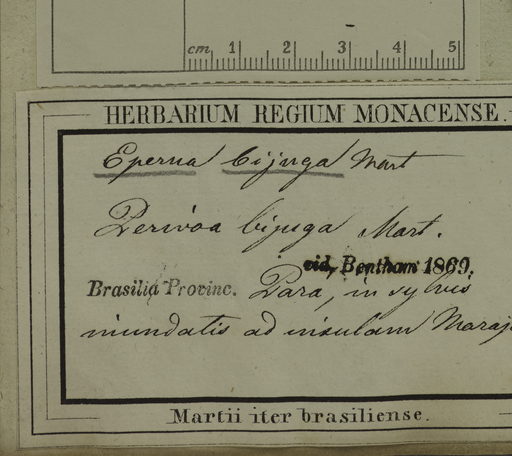 cm 1 2 3 4 5
HERBARIUM REGIUM MONACENSE.
Eperua bijuga Mart
Perivoa bijuga Mart.
vid. Bentham 1869.
Brasilia Provinc. Para, in sylvis
inundatis ad insulam Maraj
Martii iter brasiliense.